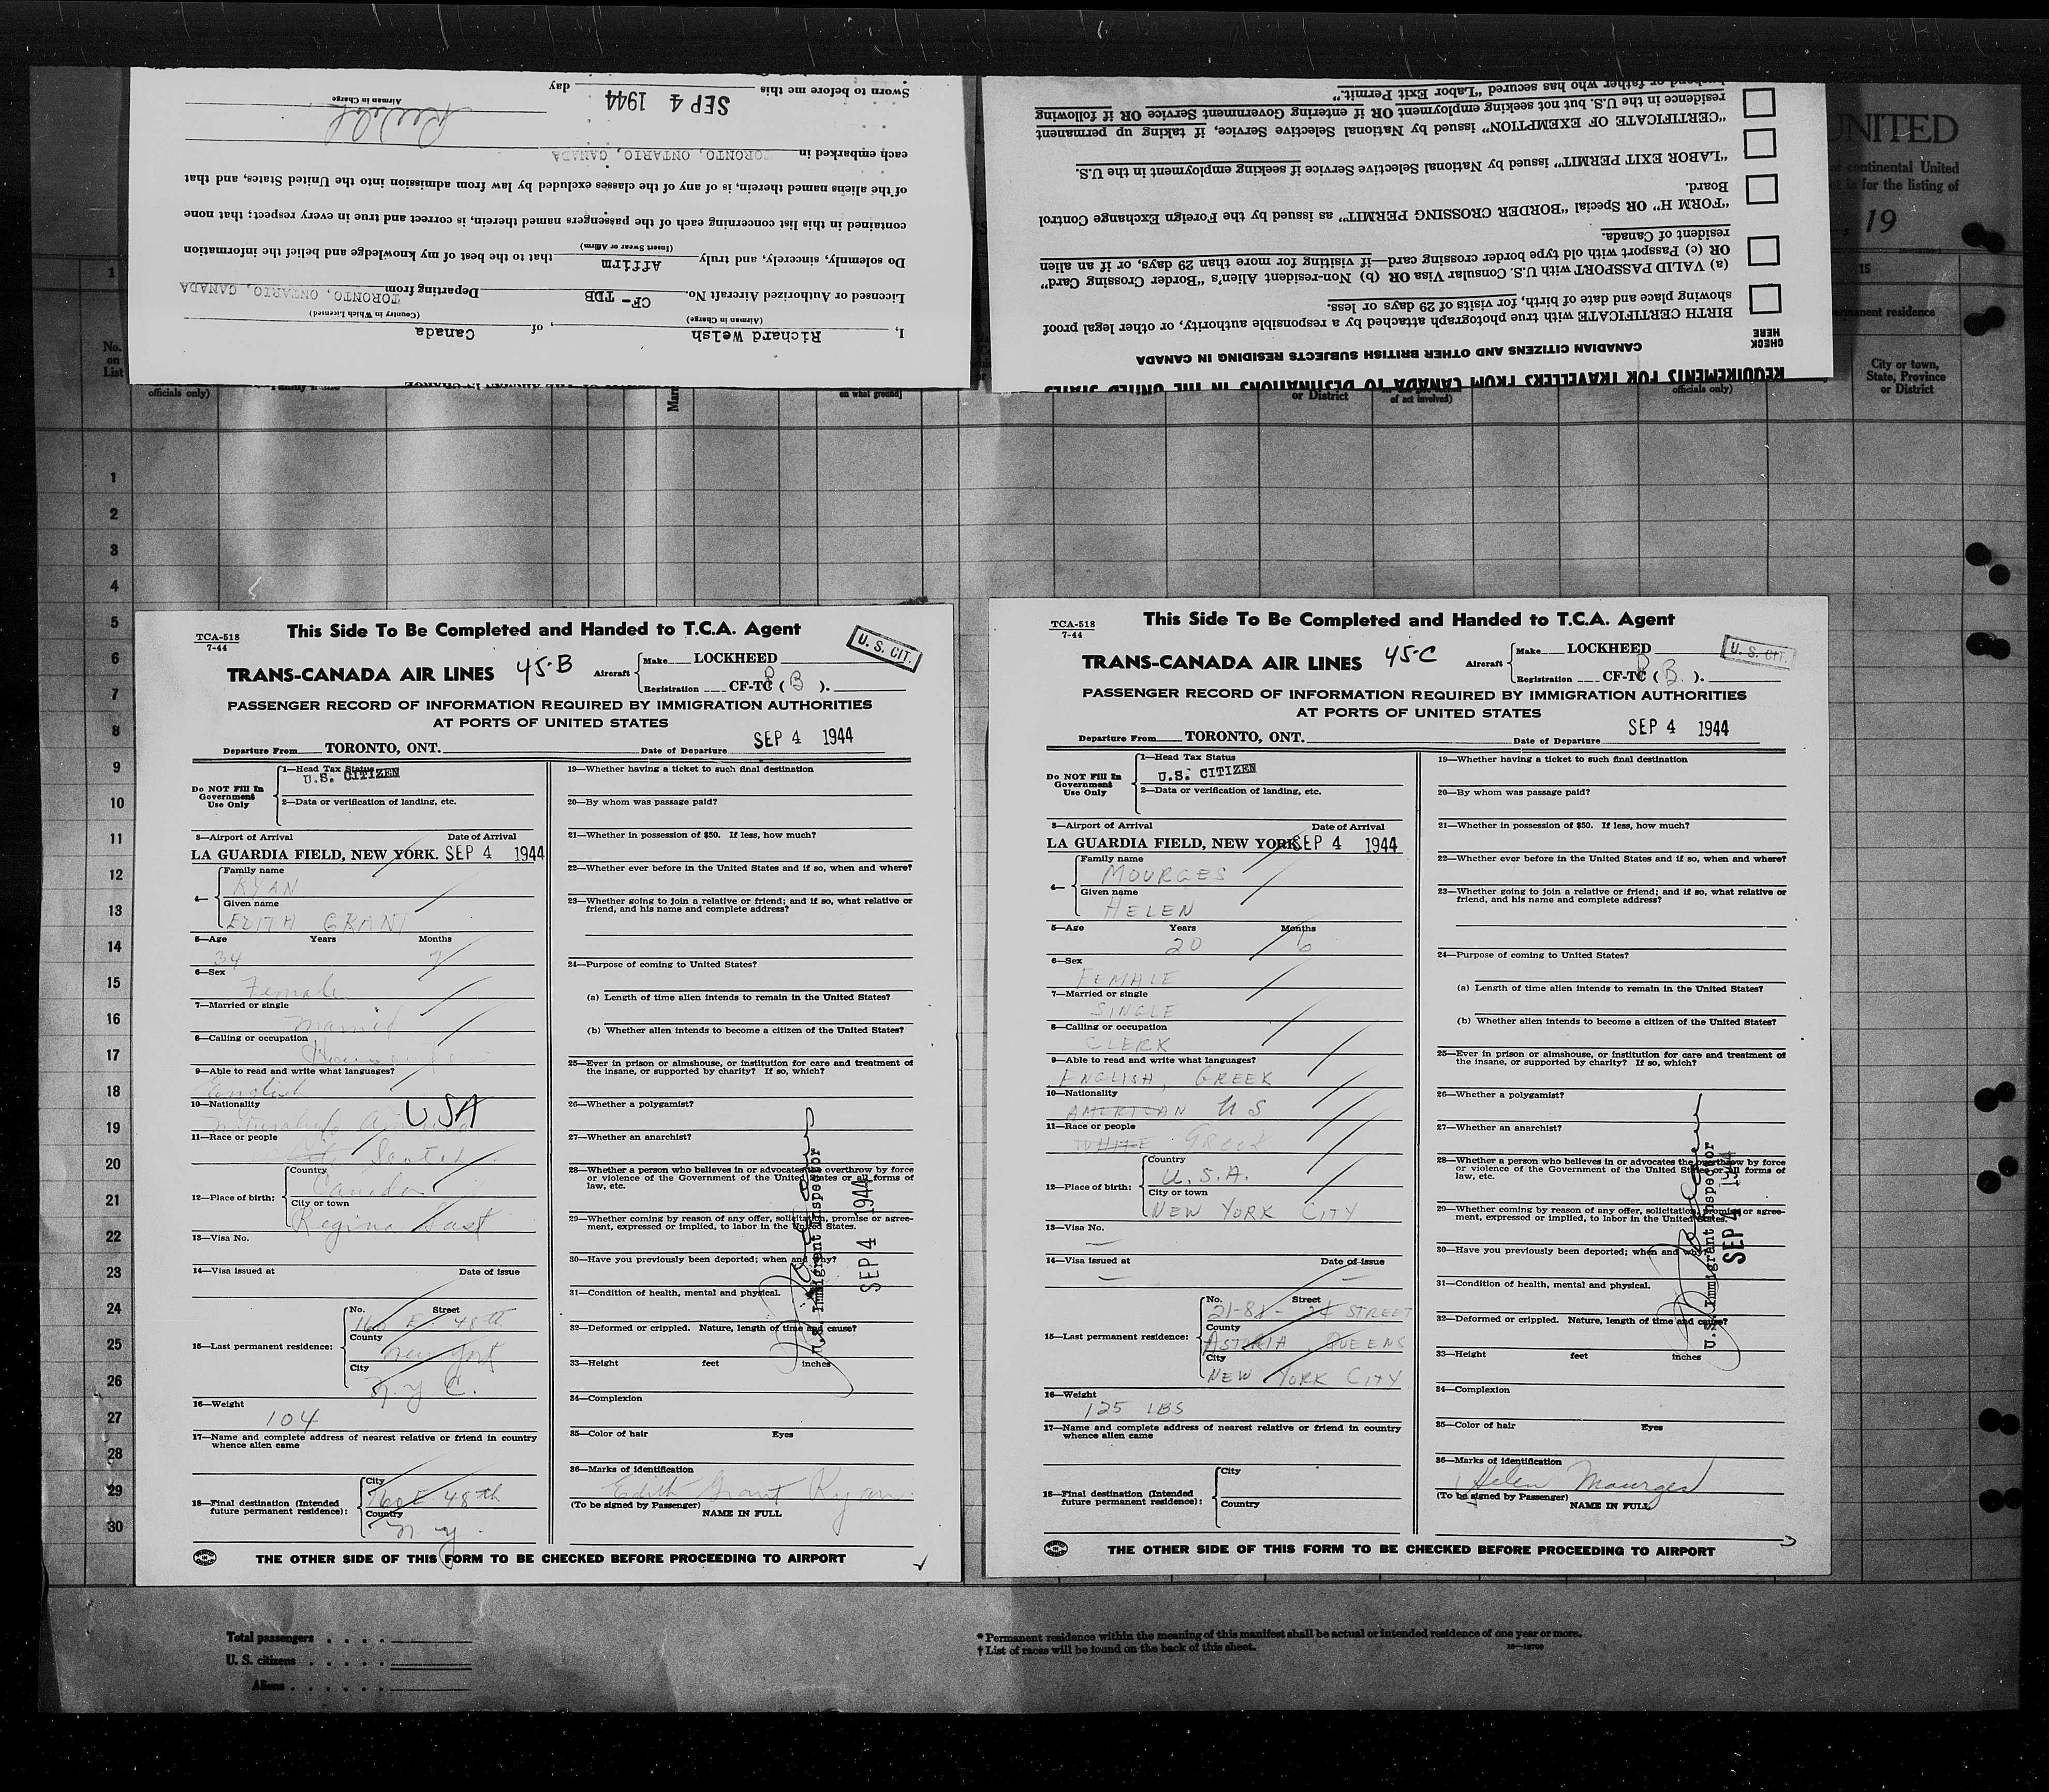 Sworn to before me this SEP 4 1944 day
Airman in Charge
each embarked in TORONTO, ONTARIO, CANADA
of the aliens named therein, is of any of the classes excluded by law from admission into the United States, and that
contained in this list concerning each of the passengers named therein, is correct and true in every respect; that none
(Insert Swear or Affirm)
Do solemnly, sincerely, and truly Affirm that to the best of my knowledge and belief the information
Licensed or Authorized Aircraft No. CF-TDB Departing from TORONTO, ONTARIO, CANADA
(Airman in Charge) (Country in Which Licensed)
I, Richard Welsh, of Canada
husband or father who has secured "Labor Exit Permit."
residence in the U.S. but not seeking employment OR if entering Government Service OR if following
"CERTIFICATE OF EXEMPTION" issued by National Selective Service, if taking up permanent
"LABOR EXIT PERMIT" issued by National Selective Service if seeking employment in the U.S.
Board.
"FORM H" OR Special "BORDER CROSSING PERMIT" as issued by the Foreign Exchange Control
resident of Canada.
OR (c) Passport with old type border crossing card—if visiting for more than 29 days, or if an alien
(a) VALID PASSPORT with U.S. Consular Visa OR (b) Non-resident Alien's "Border Crossing Card"
showing place and date of birth, for visits of 29 days or less.
BIRTH CERTIFICATE with true photograph attached by a responsible authority, or other legal proof
CHECK HERE
CANADIAN CITIZENS AND OTHER BRITISH SUBJECTS RESIDING IN CANADA
REQUIREMENTS FOR TRAVELLERS FROM CANADA TO DESTINATIONS IN THE UNITED STATES
UNITED
continental United
is for the listing of
, 19
1
15
permanent residence
No.
on
List
City or town,
State, Province
or District
officials only)
on what ground]
or District
of act involved)
officials only)
1
2
3
4
5
6
7
8
9
10
11
12
13
14
15
16
17
18
19
20
21
22
23
24
25
26
27
28
29
30
TCA-518
7-44
This Side To Be Completed and Handed to T.C.A. Agent
U. S. CIT.
TRANS-CANADA AIR LINES 45-B Aircraft
Make LOCKHEED
Registration CF-TC D ( B ).
PASSENGER RECORD OF INFORMATION REQUIRED BY IMMIGRATION AUTHORITIES
AT PORTS OF UNITED STATES
Departure From TORONTO, ONT. Date of Departure SEP 4 1944
Do NOT Fill In
Government
Use Only
1—Head Tax Status
U.S. CITIZEN
2—Data or verification of landing, etc.
3—Airport of Arrival Date of Arrival
LA GUARDIA FIELD, NEW YORK. SEP 4 1944
4— Family name
RYAN
Given name
EDITH GRANT
5—Age Years Months
34 7
6—Sex
Female
7—Married or single
Married
8—Calling or occupation
Housewife
9—Able to read and write what languages?
English
10—Nationality
USA
11—Race or people
12—Place of birth: Country
Canada
City or town
Regina Sask
13—Visa No.
14—Visa issued at Date of issue
15—Last permanent residence: No. Street
160 E. 48th
County
New York
City
N.Y.C.
16—Weight
104
17—Name and complete address of nearest relative or friend in country
whence alien came
18—Final destination (Intended
future permanent residence):
City
160 E 48th
Country
N.Y.
19—Whether having a ticket to such final destination
20—By whom was passage paid?
21—Whether in possession of $50. If less, how much?
22—Whether ever before in the United States and if so, when and where?
23—Whether going to join a relative or friend; and if so, what relative or
friend, and his name and complete address?
24—Purpose of coming to United States?
(a) Length of time alien intends to remain in the United States?
(b) Whether alien intends to become a citizen of the United States?
25—Ever in prison or almshouse, or institution for care and treatment of
the insane, or supported by charity? If so, which?
26—Whether a polygamist?
27—Whether an anarchist?
28—Whether a person who believes in or advocates the overthrow by force
or violence of the Government of the United States or all forms of
law, etc.
29—Whether coming by reason of any offer, solicitation, promise or agree-
ment, expressed or implied, to labor in the United States.
30—Have you previously been deported; when and why?
31—Condition of health, mental and physical.
32—Deformed or crippled. Nature, length of time and cause?
33—Height feet inches
34—Complexion
35—Color of hair Eyes
36—Marks of identification
Edith Grant Ryan
(To be signed by Passenger) NAME IN FULL
U.S. Immigrant Inspector
SEP 4 1944
THE OTHER SIDE OF THIS FORM TO BE CHECKED BEFORE PROCEEDING TO AIRPORT
TCA-518
7-44
This Side To Be Completed and Handed to T.C.A. Agent
U. S. CIT.
TRANS-CANADA AIR LINES 45-C Aircraft
Make LOCKHEED
Registration CF-TC D ( B. ).
PASSENGER RECORD OF INFORMATION REQUIRED BY IMMIGRATION AUTHORITIES
AT PORTS OF UNITED STATES
Departure From TORONTO, ONT. Date of Departure SEP 4 1944
Do NOT Fill In
Government
Use Only
1—Head Tax Status
U.S. CITIZEN
2—Data or verification of landing, etc.
3—Airport of Arrival Date of Arrival
LA GUARDIA FIELD, NEW YORK. SEP 4 1944
4— Family name
MOURGES
Given name
HELEN
5—Age Years Months
20 6
6—Sex
FEMALE
7—Married or single
SINGLE
8—Calling or occupation
CLERK
9—Able to read and write what languages?
ENGLISH, GREEK
10—Nationality
AMERICAN U S
11—Race or people
WHITE Greek
12—Place of birth: Country
U.S.A.
City or town
NEW YORK CITY
13—Visa No.
—
14—Visa issued at Date of issue
— —
15—Last permanent residence: No. Street
21-81 - 24 STREET
County
ASTORIA QUEENS
City
NEW YORK CITY
16—Weight
125 LBS
17—Name and complete address of nearest relative or friend in country
whence alien came
18—Final destination (Intended
future permanent residence):
City
Country
19—Whether having a ticket to such final destination
20—By whom was passage paid?
21—Whether in possession of $50. If less, how much?
22—Whether ever before in the United States and if so, when and where?
23—Whether going to join a relative or friend; and if so, what relative or
friend, and his name and complete address?
24—Purpose of coming to United States?
(a) Length of time alien intends to remain in the United States?
(b) Whether alien intends to become a citizen of the United States?
25—Ever in prison or almshouse, or institution for care and treatment of
the insane, or supported by charity? If so, which?
26—Whether a polygamist?
27—Whether an anarchist?
28—Whether a person who believes in or advocates the overthrow by force
or violence of the Government of the United States or all forms of
law, etc.
29—Whether coming by reason of any offer, solicitation, promise or agree-
ment, expressed or implied, to labor in the United States.
30—Have you previously been deported; when and why?
31—Condition of health, mental and physical.
32—Deformed or crippled. Nature, length of time and cause?
33—Height feet inches
34—Complexion
35—Color of hair Eyes
36—Marks of identification
Helen Mourges
(To be signed by Passenger) NAME IN FULL
U.S. Immigrant Inspector
SEP 4 1944
THE OTHER SIDE OF THIS FORM TO BE CHECKED BEFORE PROCEEDING TO AIRPORT
Total passengers
U. S. citizens
Aliens
* Permanent residence within the meaning of this manifest shall be actual or intended residence of one year or more.
† List of races will be found on the back of this sheet.